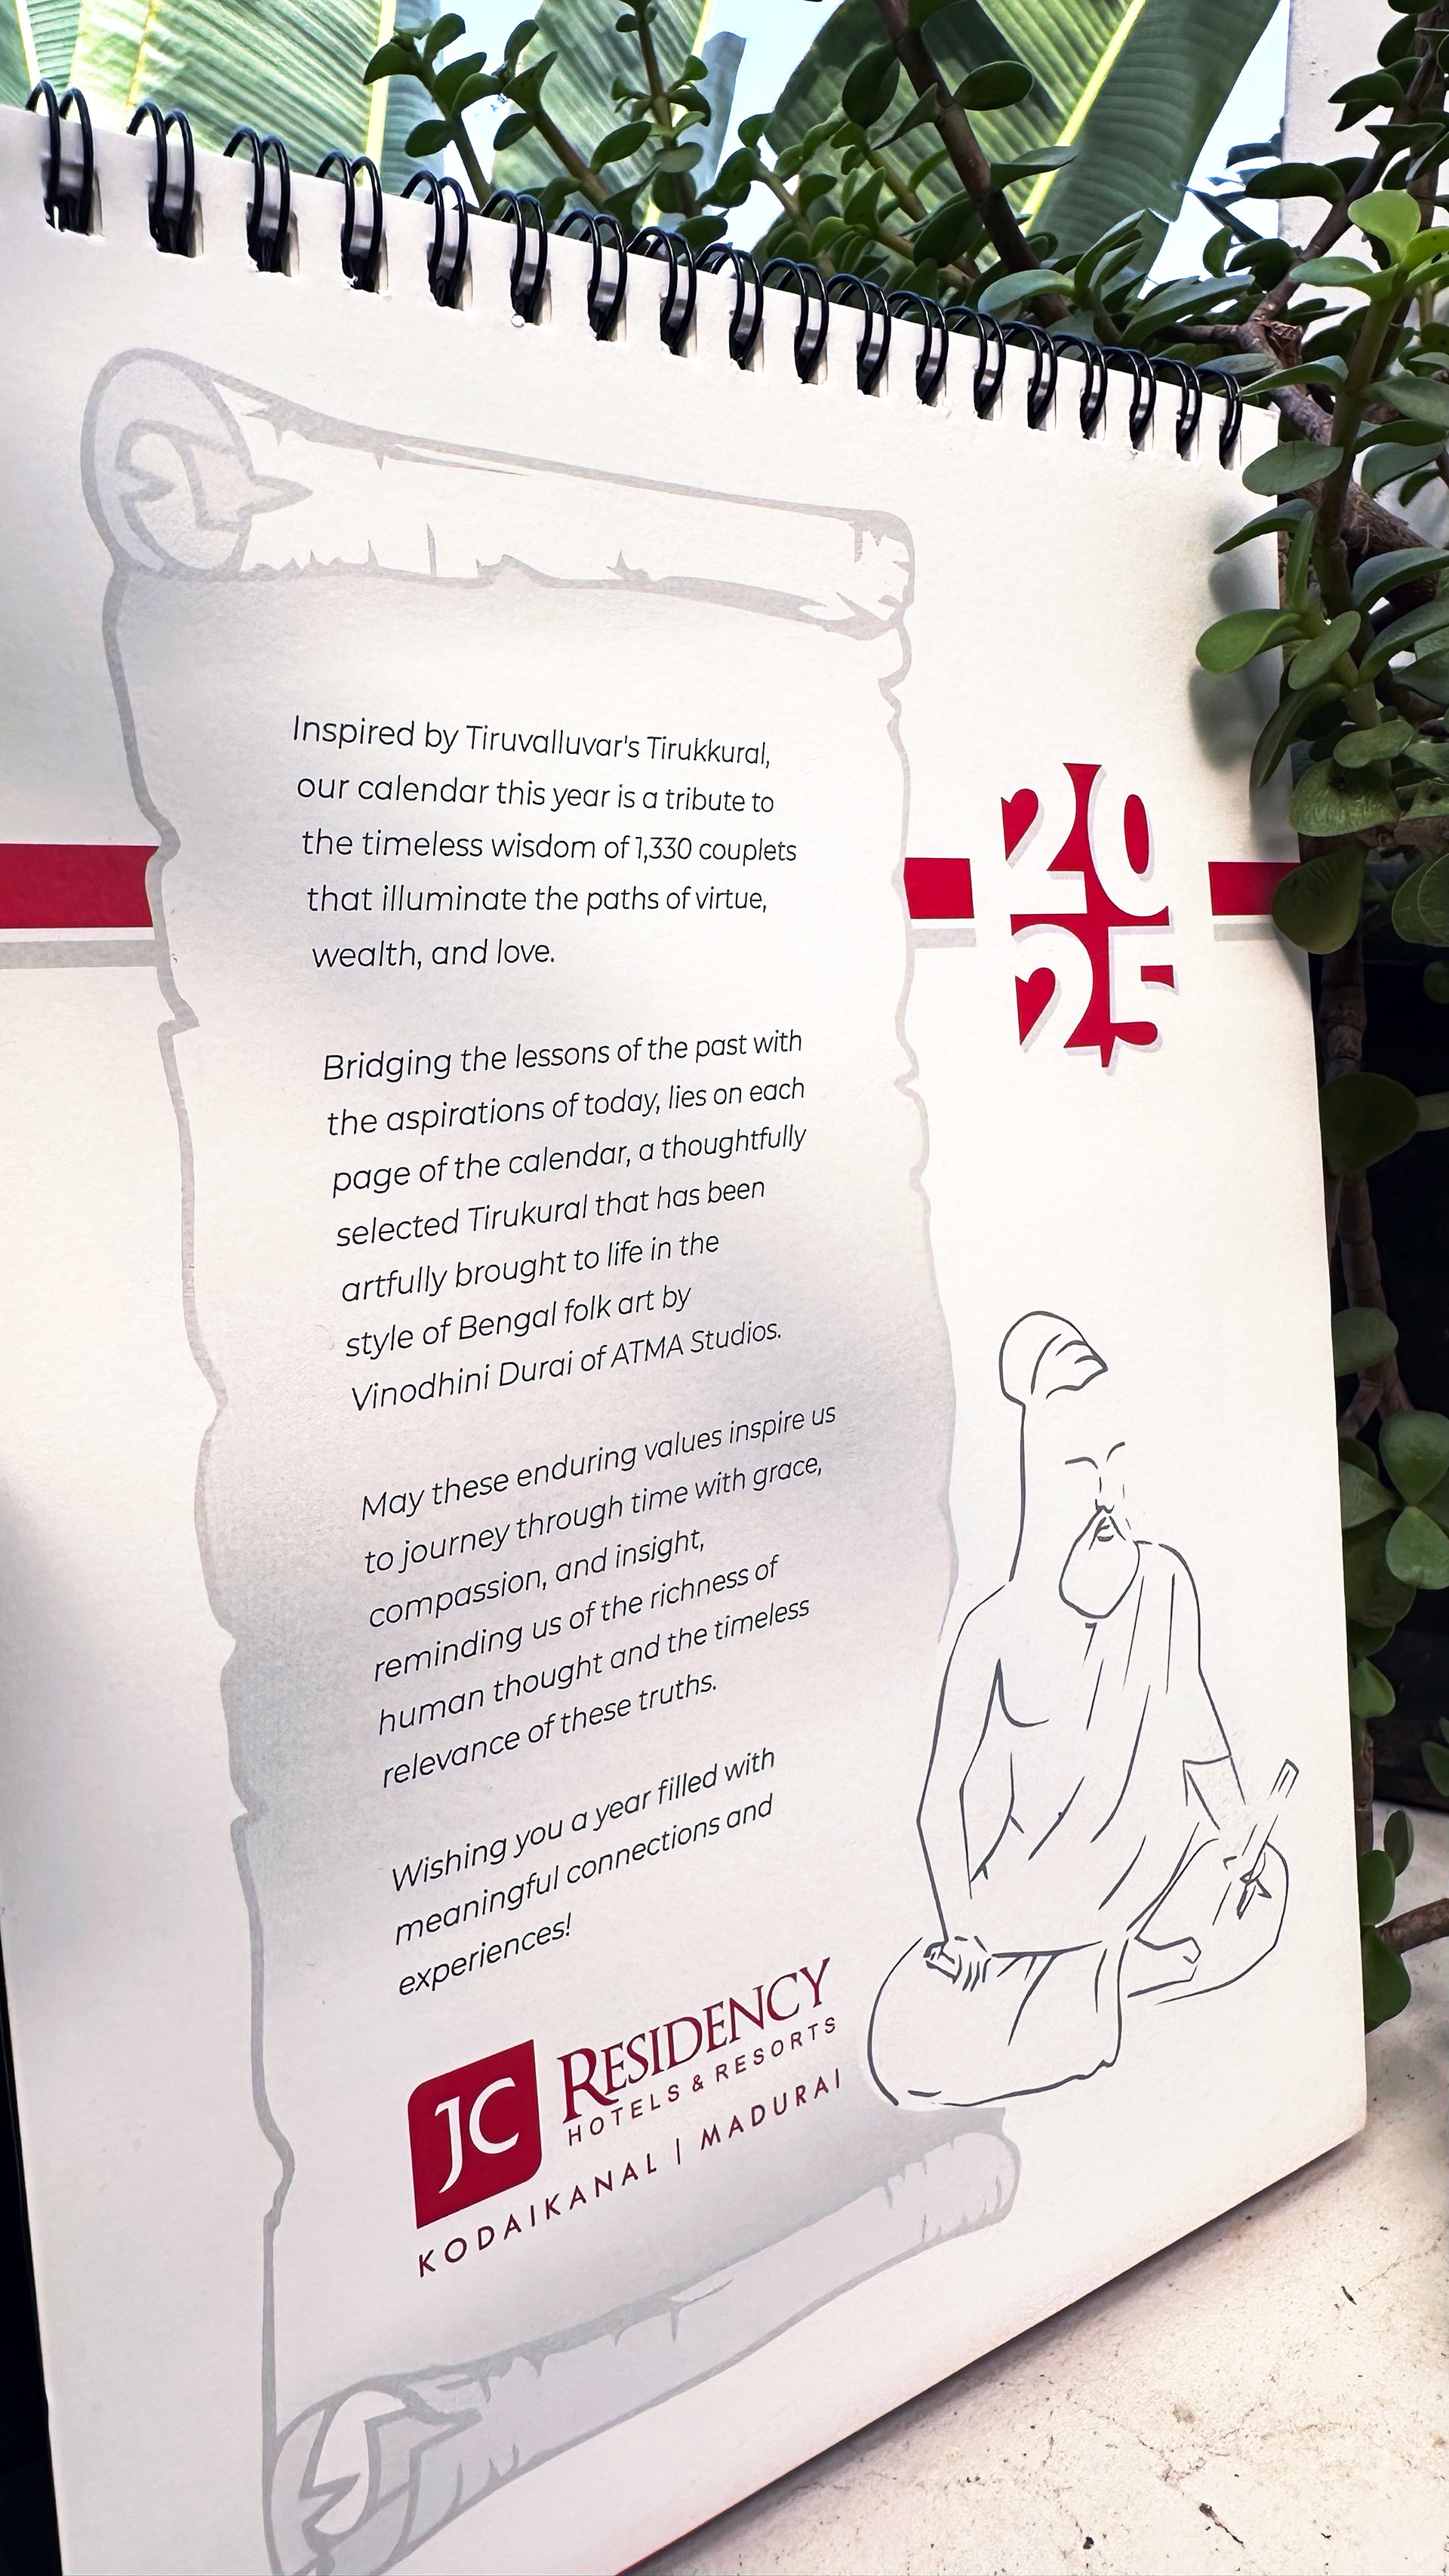 Inspired by Tiruvalluvar's Tirukkural,
our calendar this year is a tribute to
the timeless wisdom of 1,330 couplets
that illuminate the paths of virtue,
wealth, and love.
Bridging the lessons of the past with
the aspirations of today, lies on each
page of the calendar, a thoughtfully
selected Tirukural that has been
artfully brought to life in the
style of Bengal folk art by
Vinodhini Durai of ATMA Studios.
May these enduring values inspire us
to journey through time with grace,
compassion, and insight,
reminding us of the richness of
human thought and the timeless
relevance of these truths.
Wishing you a year filled with
meaningful connections and
experiences!
JC RESIDENCY
HOTELS & RESORTS
KODAIKANAL | MADURAI
20
25